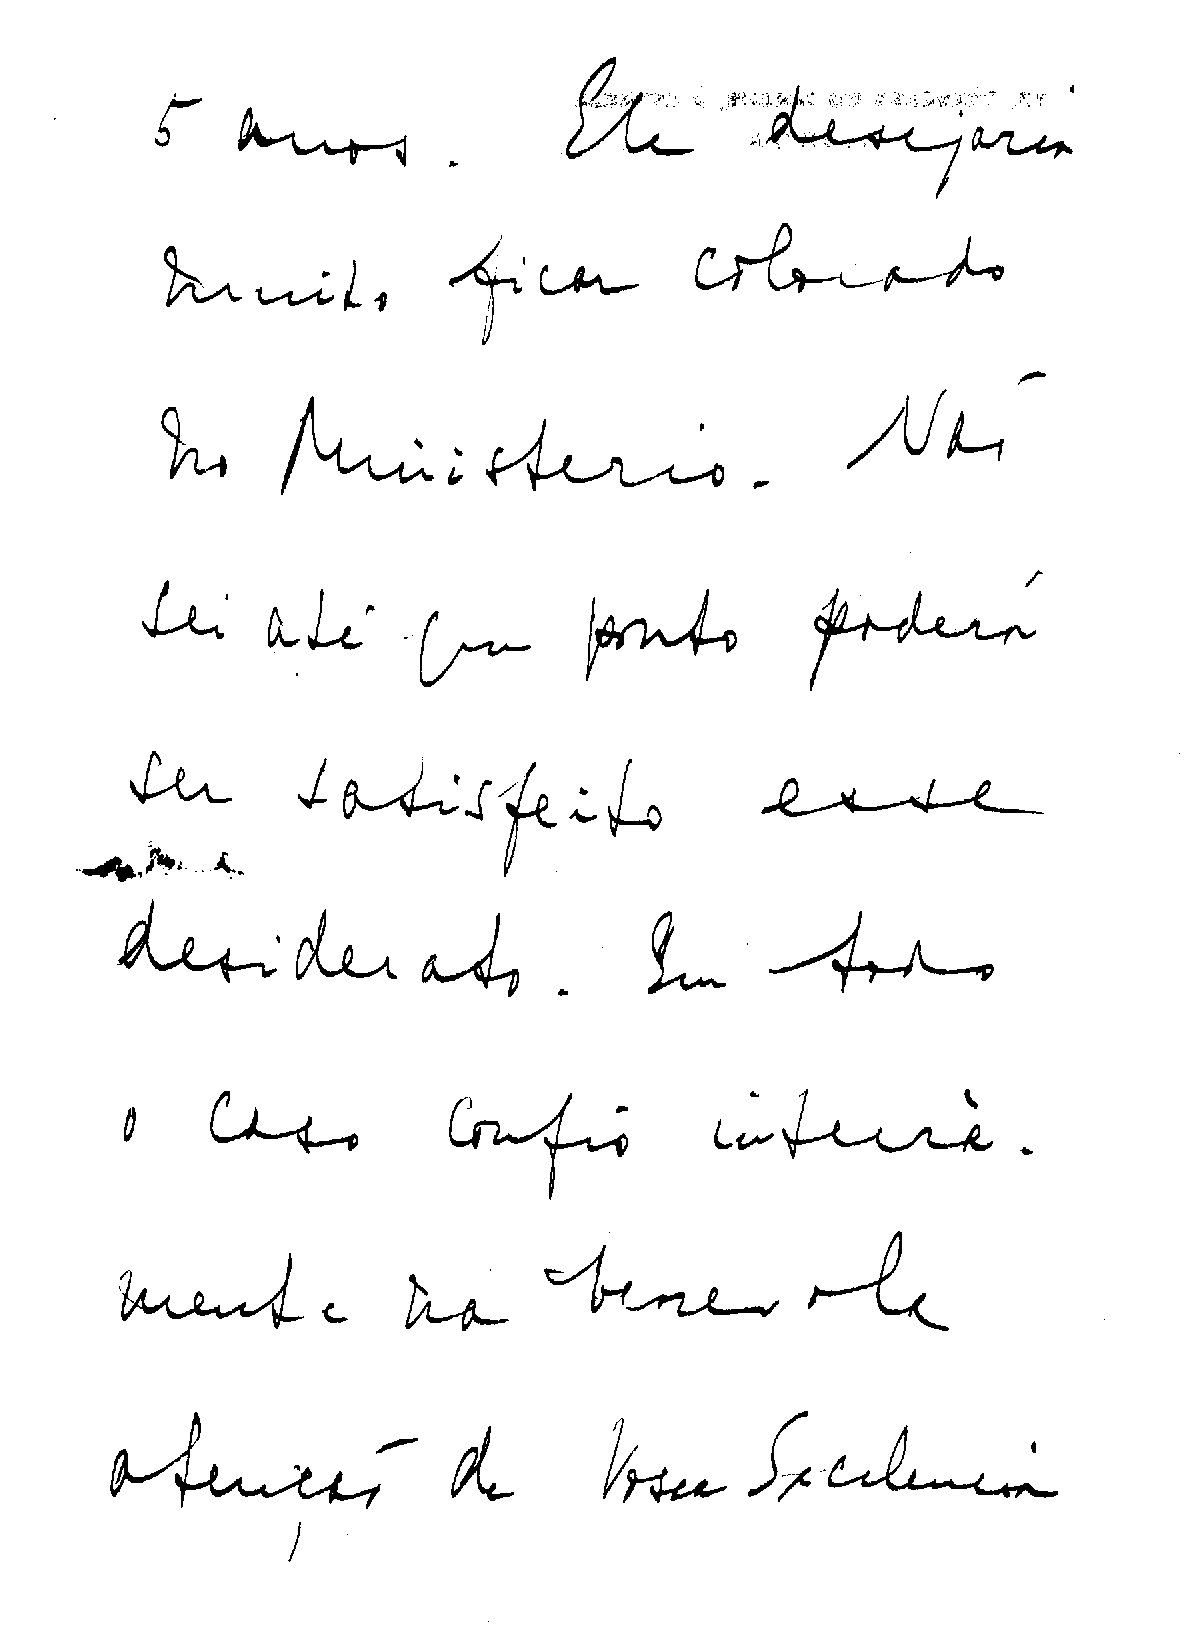 5 anos. Ele desejaria
muito ficar colocado
no Ministerio. Não
sei até que ponto poderá
ser satisfeito esse
desiderato. Em todo
o caso confio inteira-
mente na benevola
atenção de Vossa Excelencia